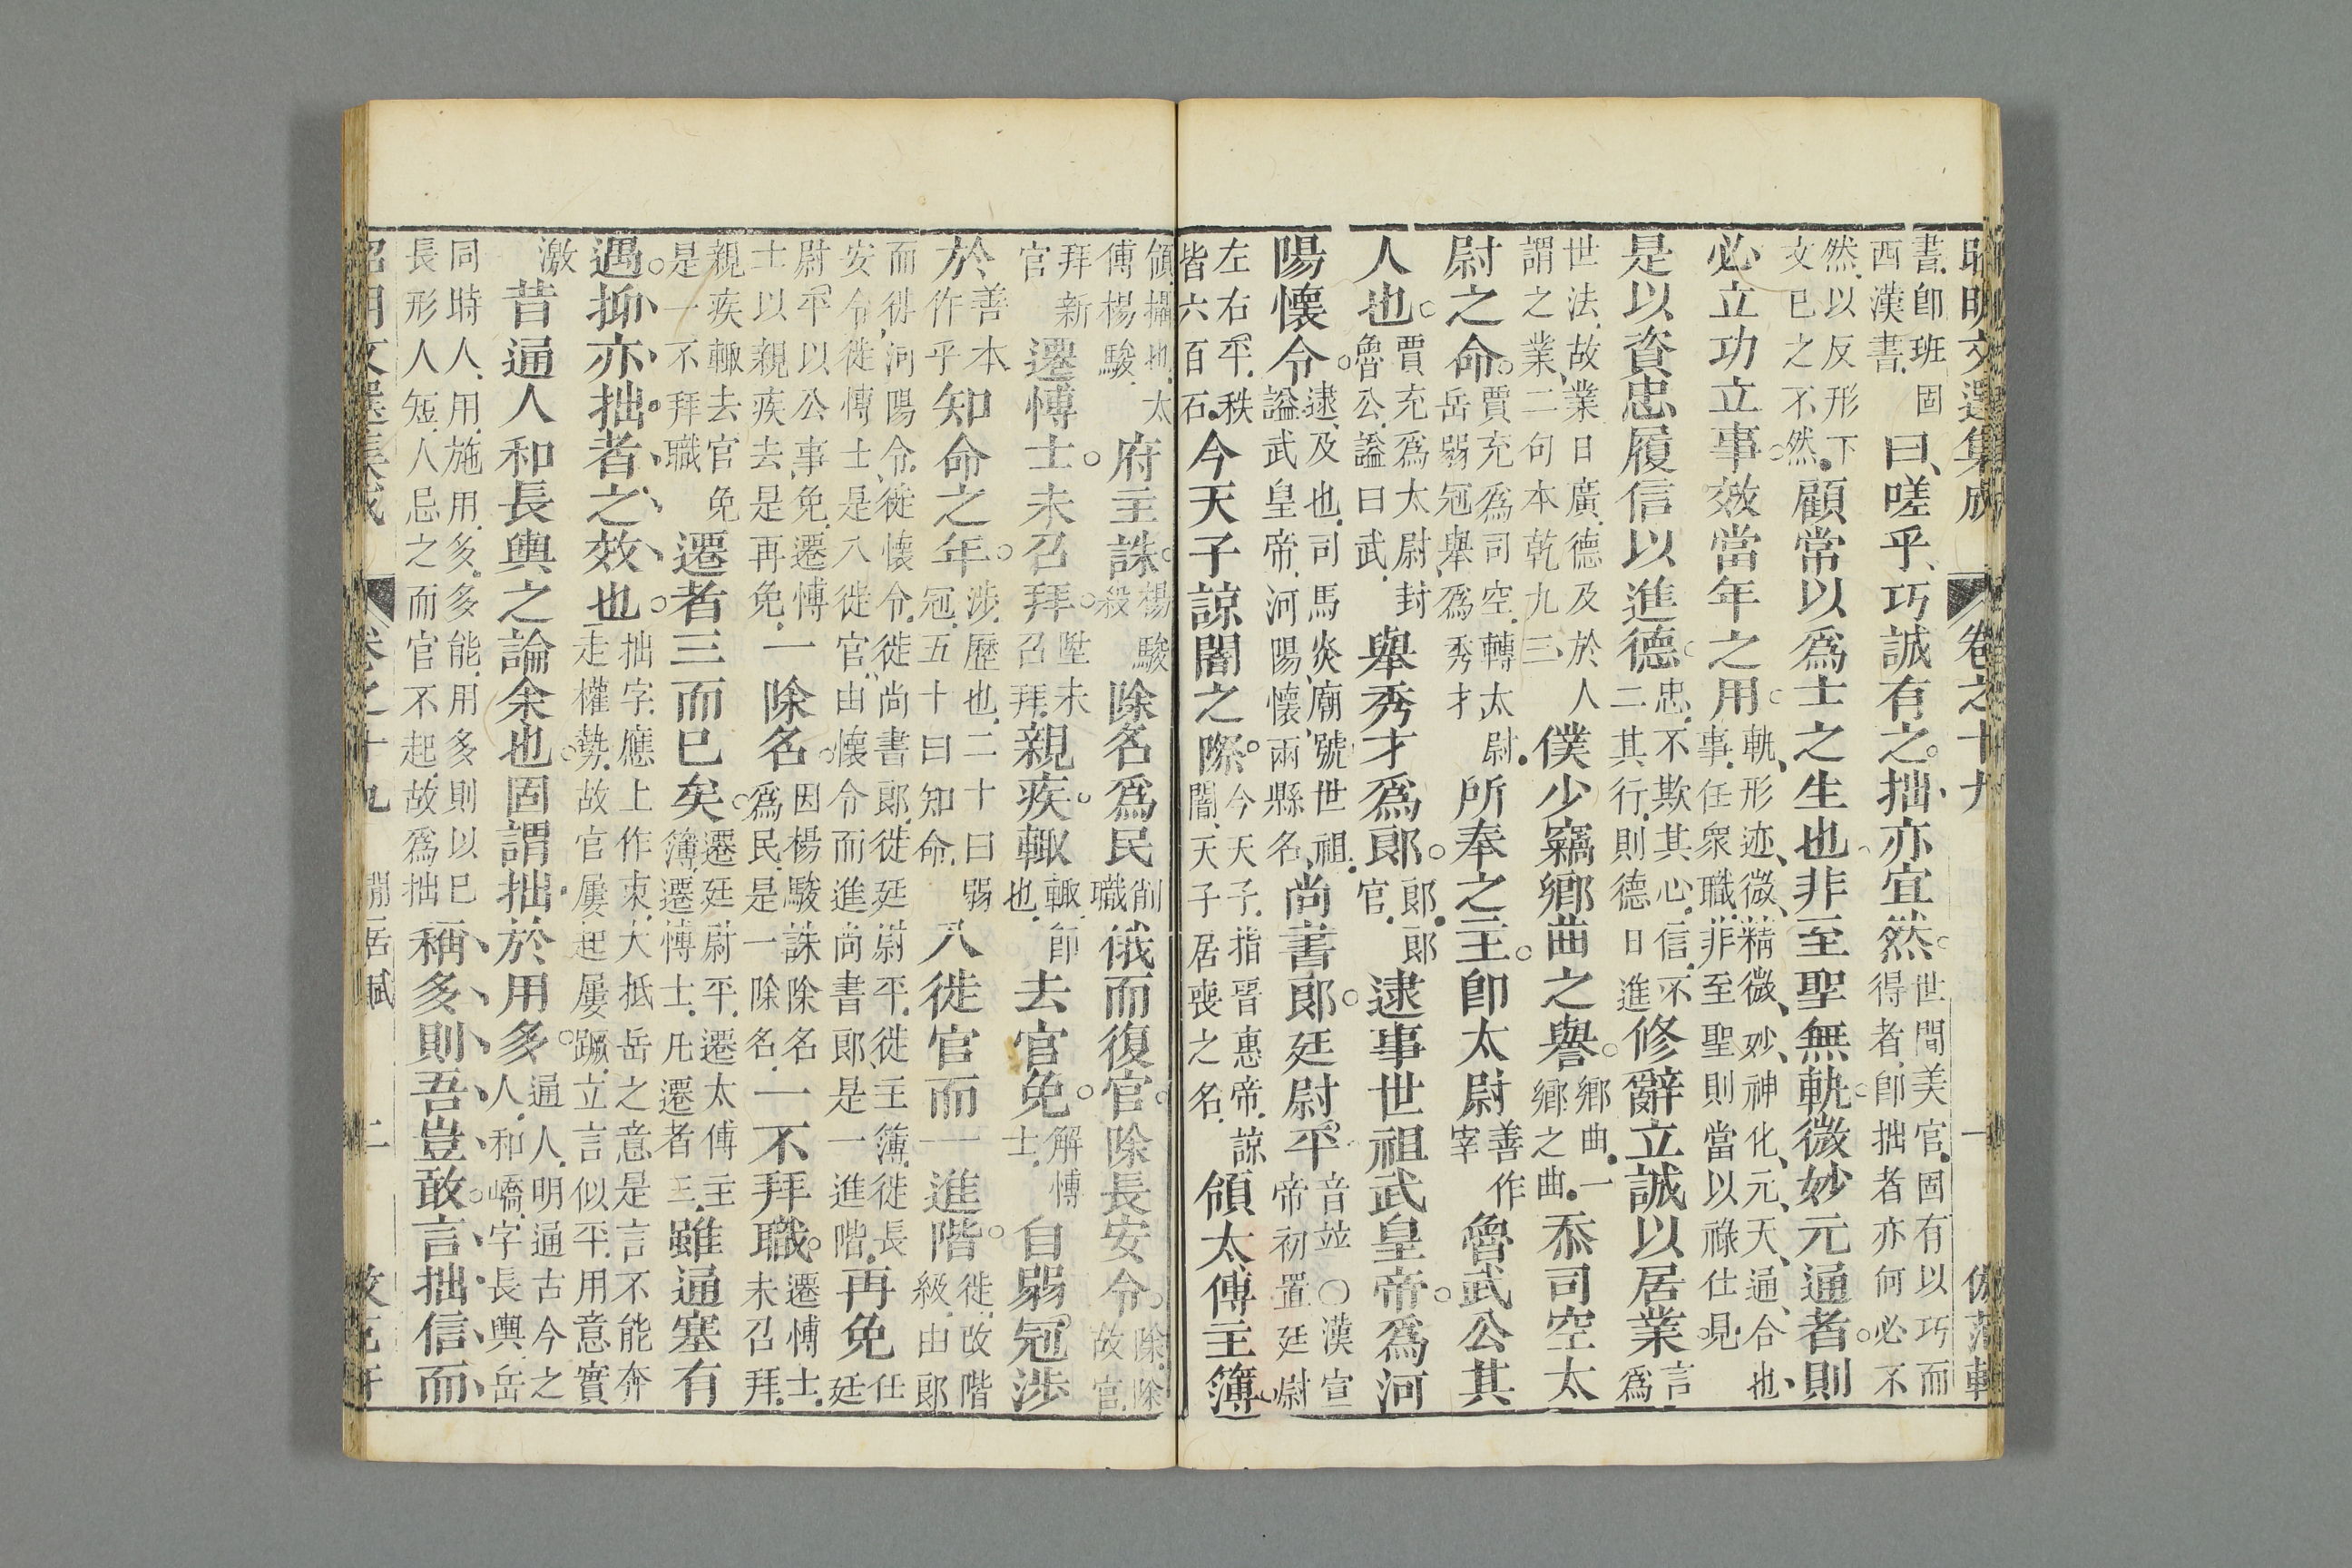 昭明文選集成　卷之十九　一
書即班固西漢書曰嗟乎巧誠有之拙亦宜然世間美官固有以巧而得者即拙者亦何必不
然以反形下文已之不然顧常以爲士之生也非至聖無軌微妙元通者則
必立功立事效當年之用軌形迹微精微妙神化元天通合也事任衆職非至聖則當以祿仕見
是以資忠履信以進德忠不欺其心信不二其行則德日進修辭立誠以居業言爲
世法故業日廣德及於人謂之業二句本乾九三僕少竊鄉曲之譽鄉曲一鄉之曲忝司空太
尉之命賈充爲司空轉太尉岳弱冠舉爲秀才所奉之主即太尉善作宰魯武公其
人也賈充爲太尉封魯公謚曰武舉秀才爲郎郎郎官逮事世祖武皇帝爲河
陽懷令逮及也司馬炎廟號世祖謚武皇帝河陽懷兩縣名尚書郎廷尉平音並○漢宣帝初置廷尉
左右平秩皆六百石今天子諒闇之際今天子指晉惠帝諒闇天子居喪之名領太傅主簿
領攝也太傅楊駿府主誅楊駿殺除名爲民削職俄而復官除長安令除除故官
拜新官遷博士未召拜陞未召拜親疾輒輒即也去官免解博士自弱冠涉
於善本作乎知命之年涉歷也二十曰弱冠五十曰知命八徙官而一進階徙改階級由郎
而徘河陽令徙懷令徙尚書郎徙廷尉平徙主簿徙長安令徙博士是八徙官由懷令而進尚書郎是一進階再免任廷
尉平以公事免遷博士以親疾去是再免一除名因楊駿誅除名爲民是一除名一不拜職遷博士未召拜
親疾輒去官免是一不拜職遷者三而已矣遷廷尉平遷太傅主簿遷博士凡遷者三雖通塞有
遇抑亦拙者之效也拙字應上作束大抵岳之意是言不能奔走權勢故官屢起屢蹶立言似平用意實
激昔通人和長輿之論余也固謂拙於用多通人明通古今之人和嶠字長輿岳
同時人用施用多多能用多則以已長形人短人忌之而官不起故爲拙稱多則吾豈敢言拙信而
昭明文選集成　卷之十九　閒居賦　二